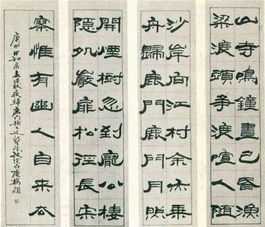 山寺鳴鐘晝已昏漁
梁渡頭爭渡喧人隨
沙岸向江村余亦乘
舟歸鹿門鹿門月照
開煙樹忽到龐公棲
隱処巖扉松徑長寂
寥惟有幽人自來去
夜歸鹿門